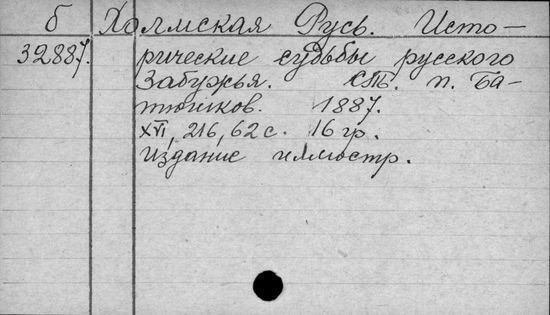 б Холмская Русь. Исто-
32887. рические судьбы русского
Забужья. СПб. п. Ба-
тюшков. 1887.
XVI, 216, 62 с. 16 гр.
Издание иллюстр.